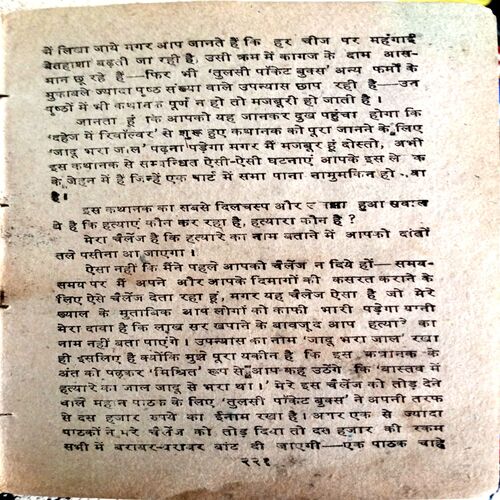 में लिखा जाये मगर आप जानते हैं कि हर चीज पर महंगाई
बेतहाशा बढ़ती जा रही है, उसी क्रम में कागज के दाम आस-
मान छू रहे हैं—फिर भी 'तुलसी पॉकेट बुक्स' अन्य फर्मों के
मुकाबले ज्यादा पृष्ठ संख्या वाले उपन्यास छाप रही है—उन
पृष्ठों में भी कथानक पूर्ण न हो तो मजबूरी हो जाती है ।
जानता हूं कि आपको यह जानकर दुख पहुंचा होगा कि
'दहेज में रिवॉल्वर' से शुरू हुए कथानक को पूरा जानने के लिए
'जादू भरा जाल' पढ़ना पड़ेगा मगर मैं मजबूर हूं दोस्तो, अभी
इस कथानक से सम्बन्धित ऐसी-ऐसी घटनाएं आपके इस ले क
के जेहन में हैं जिन्हें एक पार्ट में समा पाना नामुमकिन हो वा
है ।
इस कथानक का सबसे दिलचस्प और हुआ सवाल
ये है कि हत्याएं कौन कर रहा है, हत्यारा कौन है ?
मेरा चैलेंज है कि हत्यारे का नाम बताने में आपको दांतों
तले पसीना आ जाएगा ।
ऐसा नहीं कि मैंने पहले आपको चैलेंज न दिये हों—समय-
समय पर मैं अपने और आपके दिमागों की कसरत कराने के
लिए ऐसे चैलेंज देता रहा हूं, मगर यह चैलेंज ऐसा है जो मेरे
ख्याल के मुताबिक आप लोगों को काफी भारी पड़ेगा यानी
मेरा दावा है कि लाख सर खपाने के बावजूद आप हत्यारे का
नाम नहीं बता पाएंगे । उपन्यास का नाम 'जादू भरा जाल' रखा
ही इसलिए है क्योंकि मुझे पूरा यकीन है कि इस कथानक के
अंत को पढ़कर 'मिश्रित' रूप से आप कह उठेंगे कि 'वास्तव में
हत्यारे का जाल जादू से भरा था ।' मेरे इस चैलेंज को तोड़ देने
वाले महान पाठक के लिए 'तुलसी पॉकेट बुक्स' ने अपनी तरफ
से दस हजार रुपये का ईनाम रखा है । अगर एक से ज्यादा
पाठकों ने मेरे चैलेंज को तोड़ दिया तो दस हजार की रकम
सभी में बराबर-बराबर बांट दी जाएगी—एक पाठक चाहे
२२१